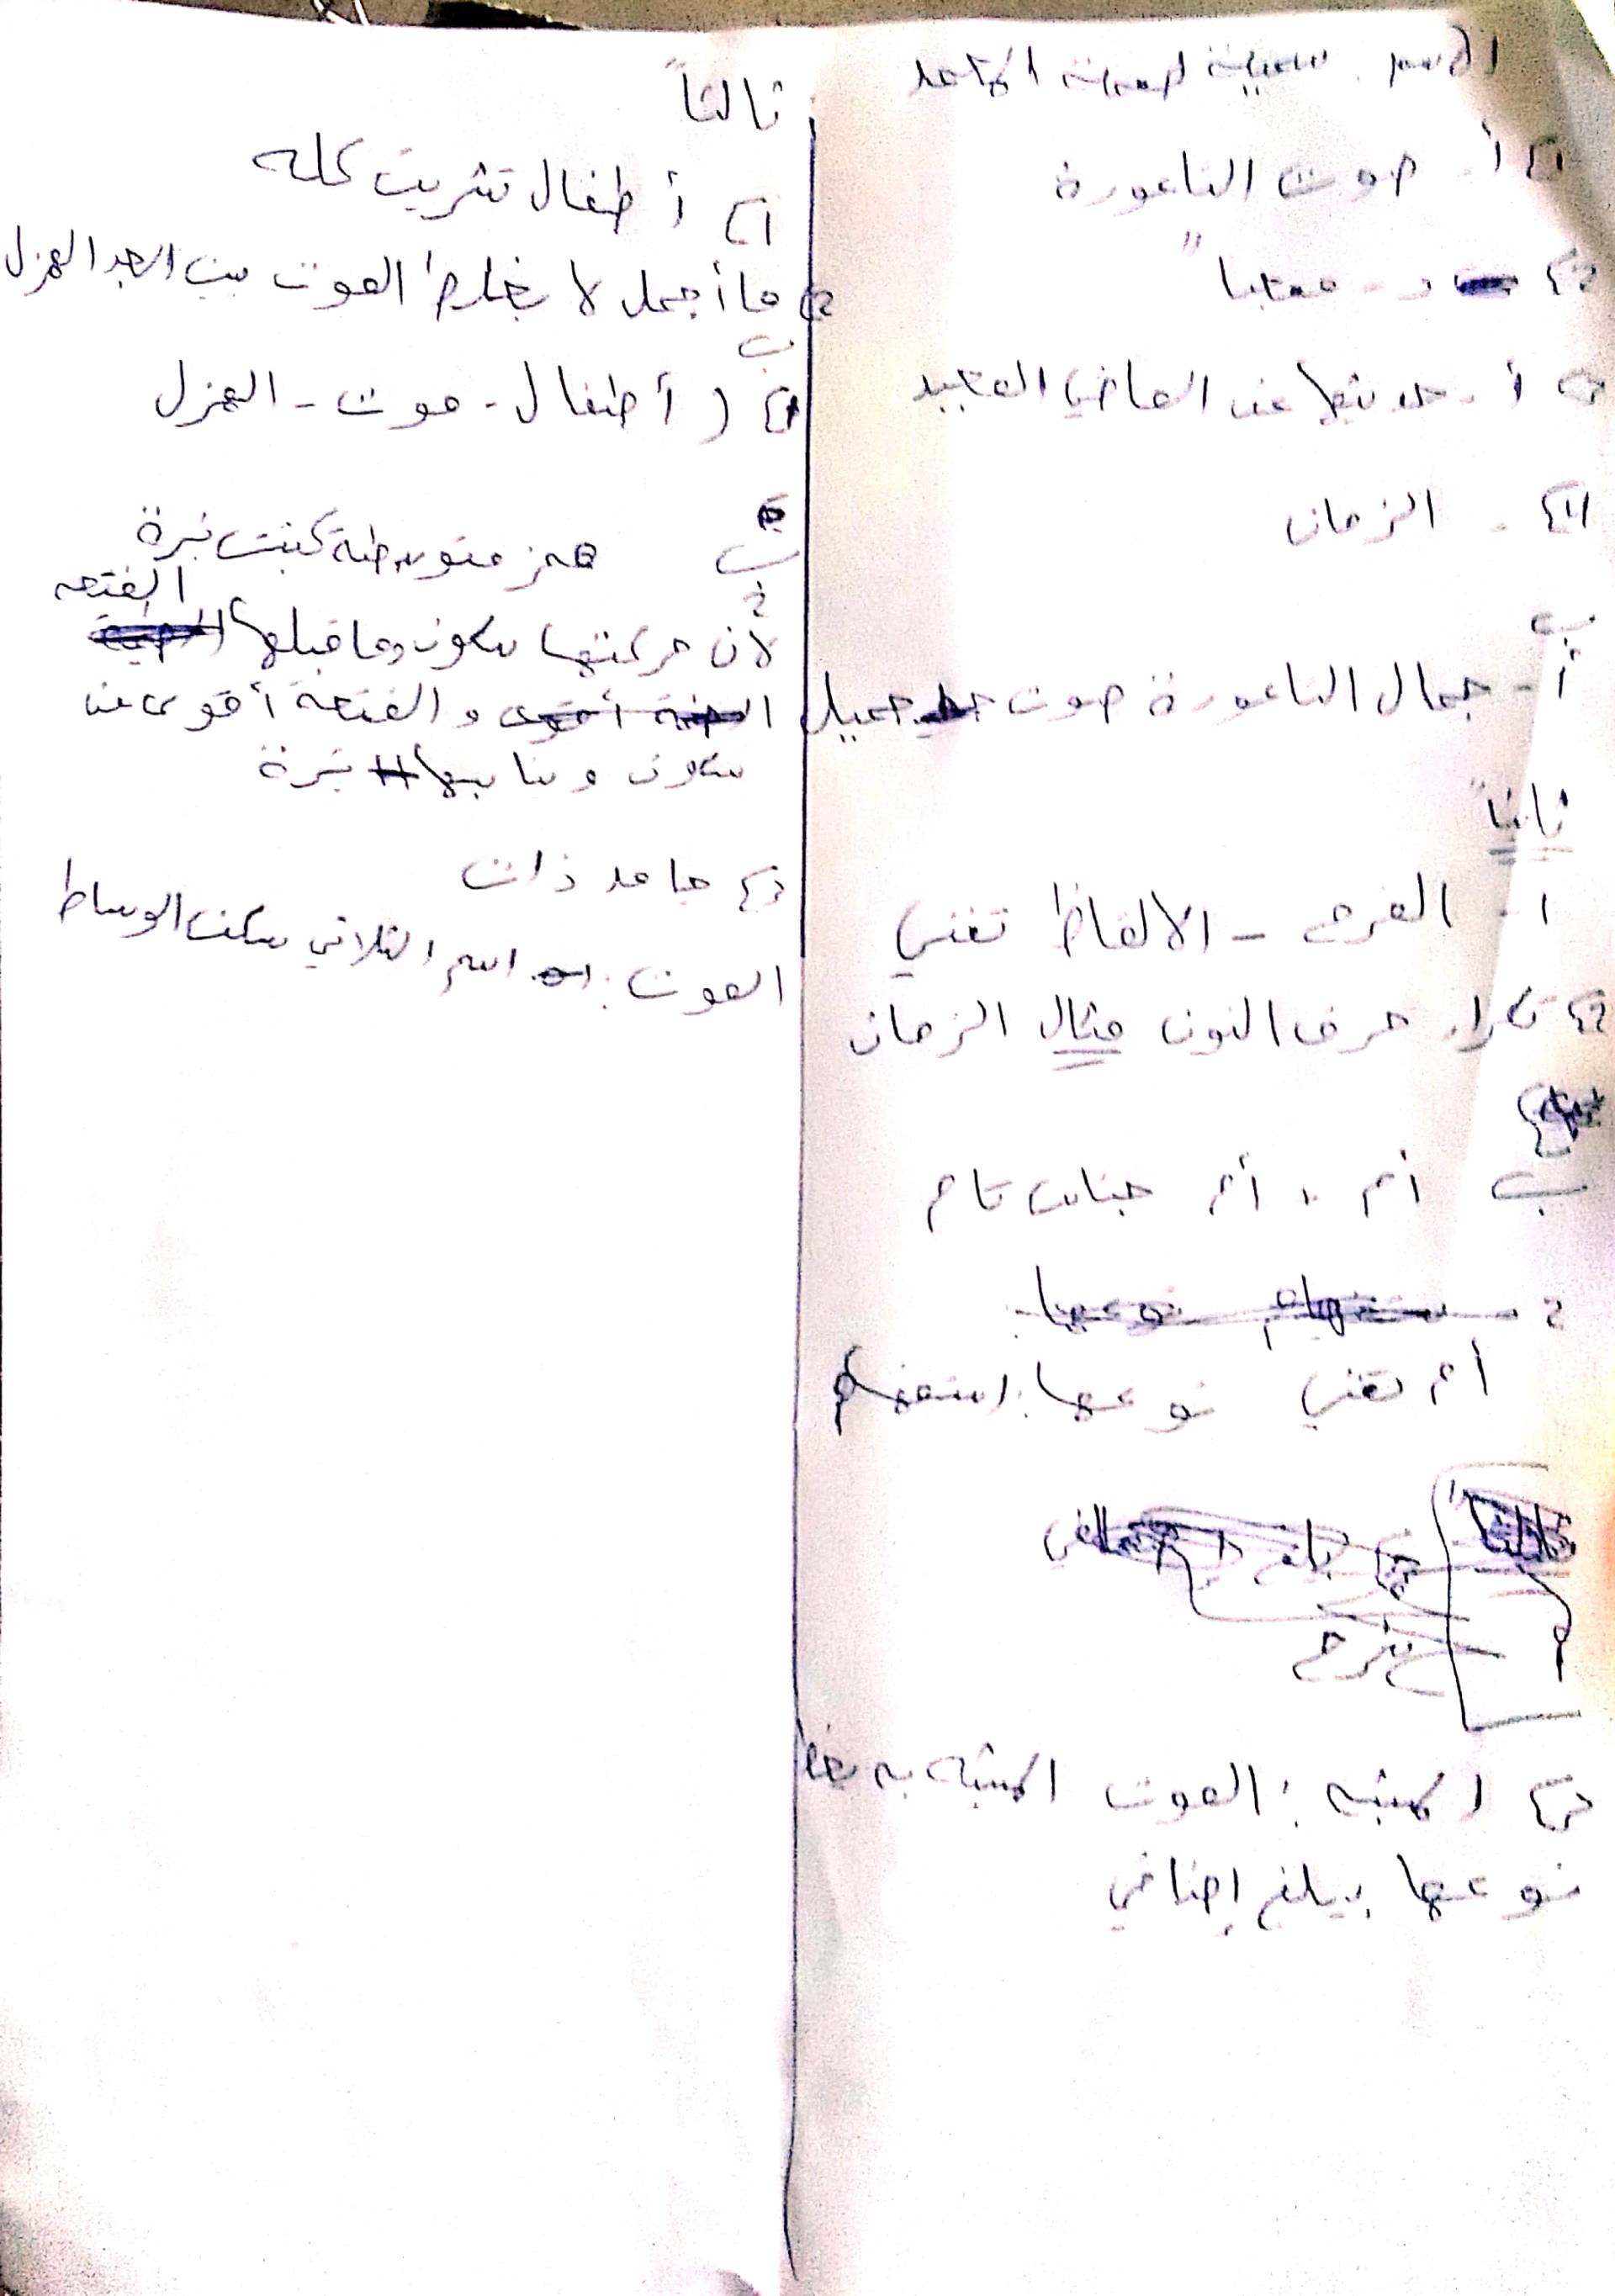 الاسم:
أ- صوت الناعورة
د- معجباً
أ- حديثها عن الماضي المجيد
الزمان
ب
أ- جمال الناعورة صوت جميل
ثانياً
١- الفرح - الالفاظ تغني
تكرار حرف النون مثال الزمان
ب أم، أم جناس تام
أم تغني نوعها: استفهام
المشبه: الصوت المشبه به
نوعها بليغ إضافي
ثالثاً
أطفال تشرين كله
ما أجمل لا يخلط الصوت بين الجد الهزل
ب
( أطفال - صوت - الهزل
ب همز متوسطة كتبت نبرة
الفتحة
لأن حركتها سكون وما قبلها
والفتحة أقوى من
سكون وناسبها نبرة
جامد ذات
الصوت: اسم الثلاثي سكنت الوساط